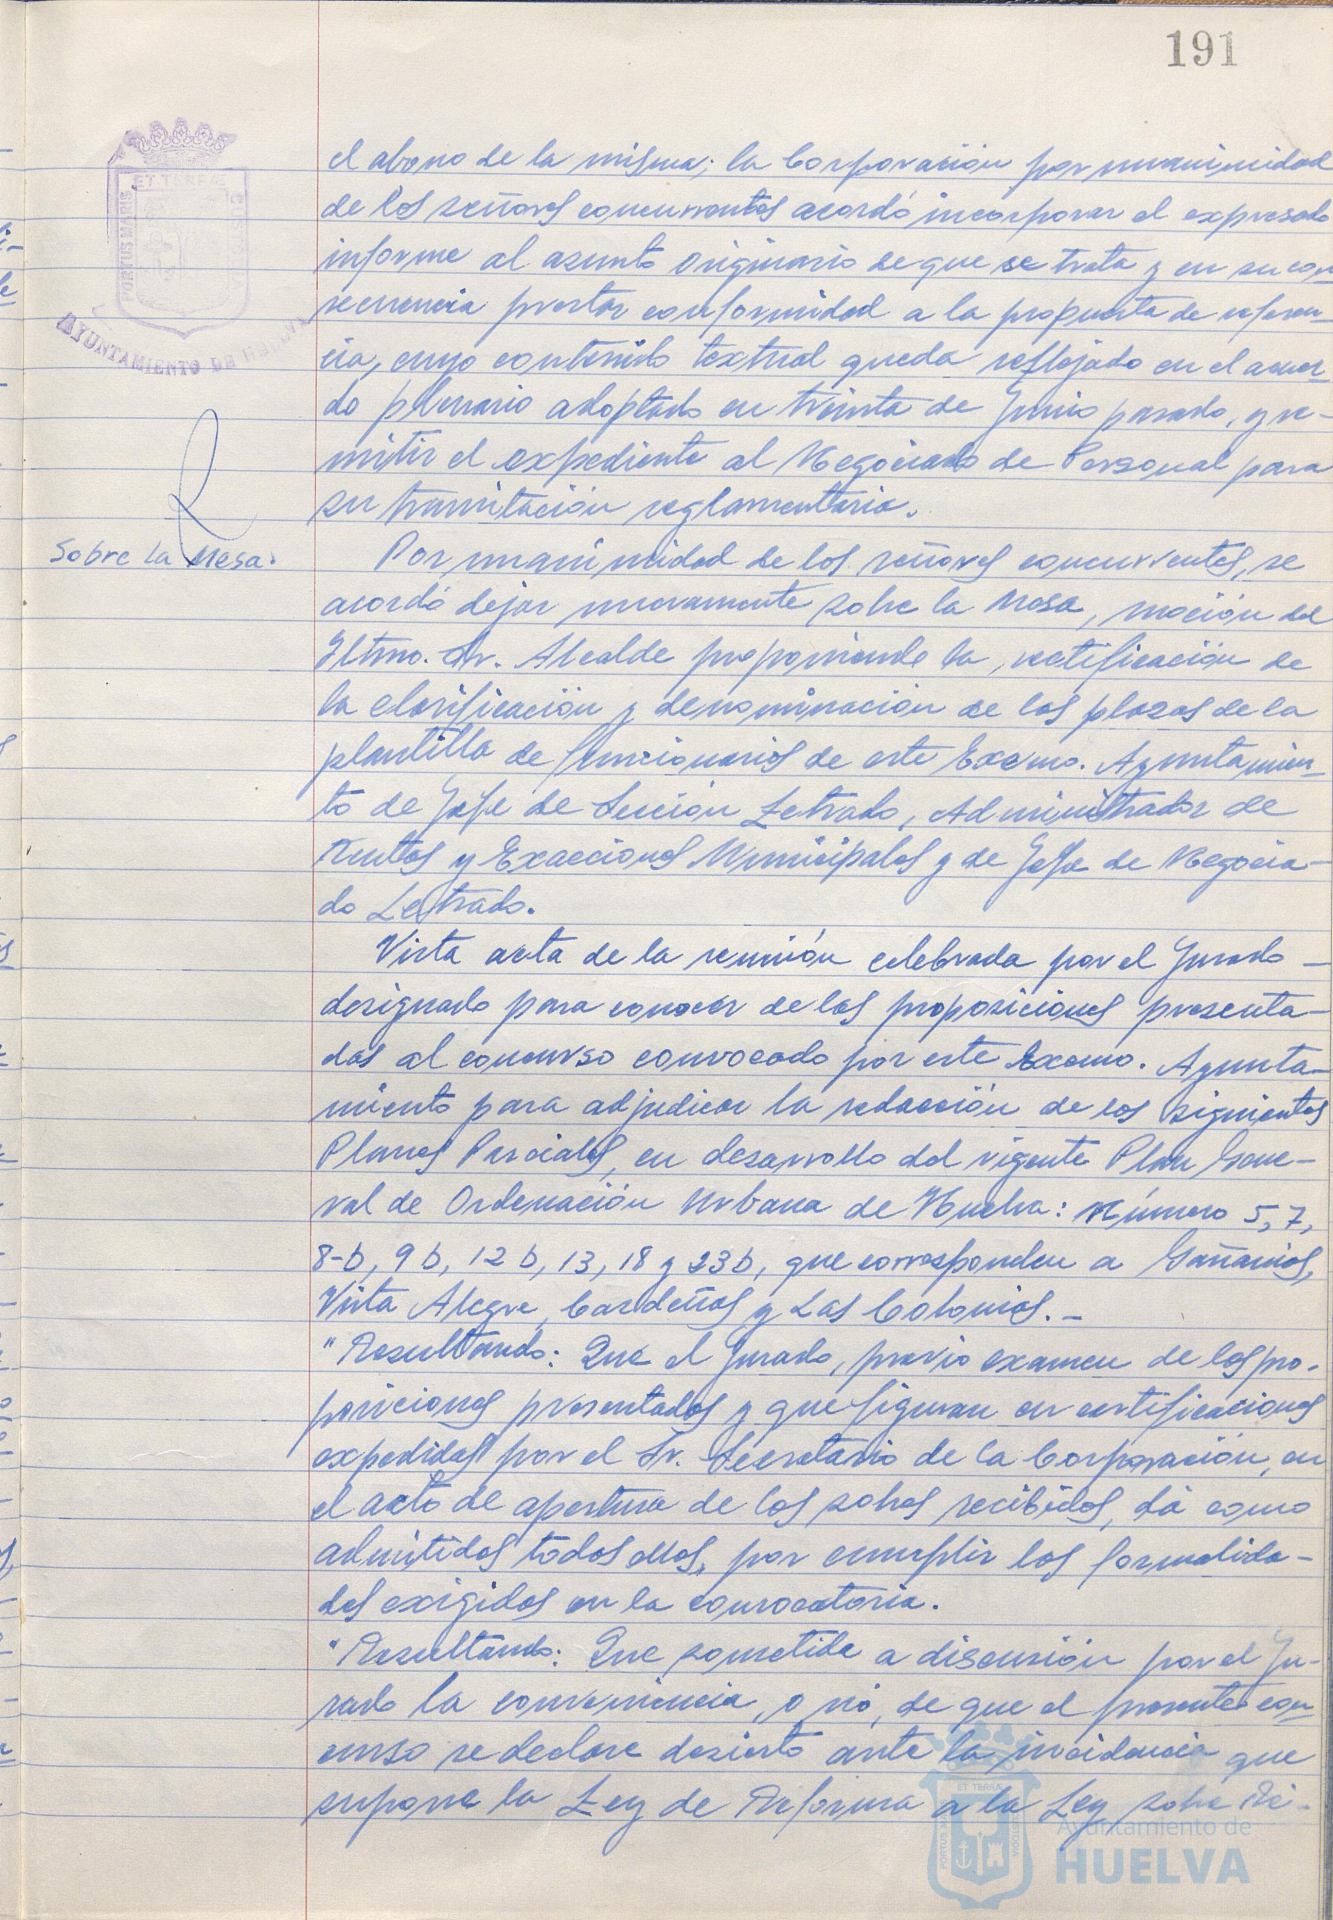 191
ET TERRÆ
PORTUS MARIS
CUSTODIA
AYUNTAMIENTO DE HUELVA
el abono de la misma; la Corporación por unanimidad
de los señores concurrentes acordó incorporar el expresado
informe al asunto originario de que se trata y en su con
secuencia prestar conformidad a la propuesta de referen-
cia, cuyo contenido textual queda reflejado en el acuer-
do plenario adoptado en treinta de Junio pasado, y re-
mitir el expediente al Negociado de Personal para
su tramitación reglamentaria.
Sobre la Mesa.
Por unanimidad de los señores concurrentes, se
acordó dejar nuevamente sobre la Mesa, moción del
Iltmo. Sr. Alcalde proponiendo la rectificación de
la clasificación y denominación de las plazas de la
plantilla de funcionarios de este Excmo. Ayuntamien-
to de Jefe de Sección Letrado, Administrador de
Rentas y Exacciones Municipales y de Jefe de Negocia-
do Letrado.
Vista acta de la reunión celebrada por el Jurado -
designado para conocer de las proposiciones presenta-
das al concurso convocado por este Excmo. Ayunta-
miento para adjudicar la redacción de los siguientes
Planes Parciales, en desarrollo del vigente Plan Gene-
ral de Ordenación Urbana de Huelva: Número 5, 7,
8-b, 9 b, 12 b, 13, 18 y 23b, que corresponden a Gañanios,
Vista Alegre, Cardeñas y Las Colonias. -
"Resultando: Que el Jurado, previo examen de las pro-
posiciones presentadas y que figuran en certificaciones
expedidas por el Sr. Secretario de la Corporación, en
el acto de apertura de los sobres recibidos, dá como
admitidos todos ellos, por cumplir las formalida-
des exigidas en la convocatoria.
"Resultando: Que sometida a discusión por el Ju-
rado la conveniencia, o nó, de que el presente con-
curso se declare desierto ante la incidencia que
supone la Ley de Reforma a la Ley sobre Ré-
ET TERRÆ
PORTUS MARIS
CUSTODIA
Ayuntamiento de
HUELVA